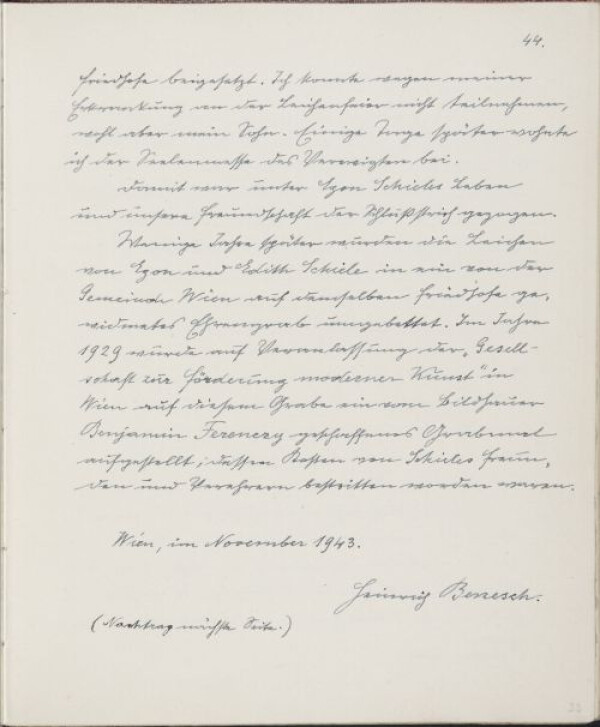 44.
Friedhofe beigesetzt. Ich konnte wegen meiner
Erkrankung an der Leichenfeier nicht teilnehmen,
wohl aber mein Sohn. Einige Tage später wohnte
ich der Seelenmesse des Verewigten bei.
Damit war unter Egon Schieles Leben
und unsere Freundschaft der Schlußstrich gezogen.
Wenige Jahre später wurden die Leichen
von Egon und Edith Schiele in ein von der
Gemeinde Wien auf demselben Friedhofe ge-
widmetes Ehrengrab umgebettet. Im Jahre
1929 wurde auf Veranlassung der „Gesell-
schaft zur Förderung moderner Kunst" in
Wien auf diesem Grabe ein vom Bildhauer
Benjamin Ferenczy geschaffenes Grabmal
aufgestellt, dessen Kosten von Schieles Freun-
den und Verehrern bestritten worden waren.
Wien, im November 1943.
Heinrich Benesch.
(Nachtrag nächste Seite.)